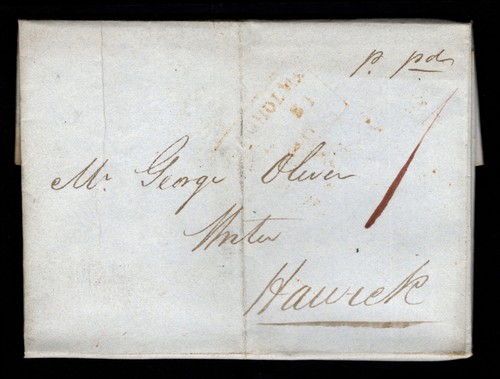 p. pd
Mr. George Oliver
Writer
Hawick